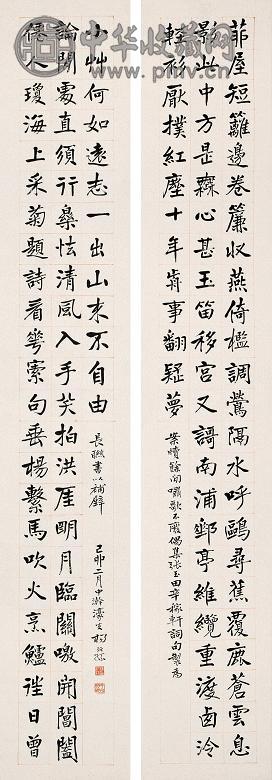 中华收藏网
茆屋短籬邊卷簾收燕倚檻調鶯隔水呼鷗尋蕉覆鹿蒼雲息
影此中方是心甚玉笛移宮又謌南浦郵亭維纜重渡鹵泠
輕衫厭撲紅塵十年歬事翻疑夢
案牘餘閒嘯歌不廢偶集張玉田辛稼軒詞句製為
僊人瓊海上采菊題詩看花索句垂楊繫馬吹火烹鱸往日曾
論閒處直須行清風入手笑拍洪厓明月臨關噭開閶闔
小艸何如遠志一出山來不自由
長聯書以補壁
己卯二月中澣濠叟楊沂孫